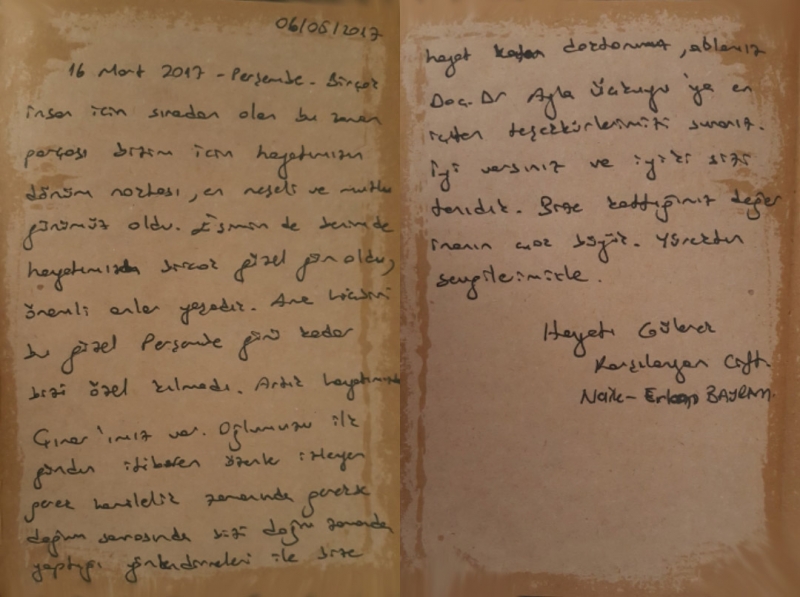 06/05/2017
16 Mart 2017 - Perşembe - Birçok
insan için sıradan olan bu zaman
parçası bizim için hayatımızın
dönüm noktası, en neşeli ve mutlu
günümüz oldu. Eşimin de benim de
hayatımızda birçok güzel gün oldu,
önemli anlar yaşadık. Ama hiçbiri
bu güzel Perşembe günü kadar
bizi özel kılmadı. Artık hayatımızda
Çınar'ımız var. Oğlumuzu ilk
günden itibaren özenle izleyen
gerek hamilelik zamanında gerekse
doğum sonrasında bizi doğru zamanda
yaptığı yönlendirmeleri ile bize
hayat dolduran, ablamız
Doç. Dr Ayla Üçkuyu'ya en
içten teşekkürlerimizi sunarız.
İyi varsınız ve iyi ki sizi
tanıdık. Bize kattığınız değer
inanın çok büyük. Yürekten
sevgilerimizle.
Hayatı Gülerek
Karşılayan Çift.
Naile - Erkan BAYRAM.